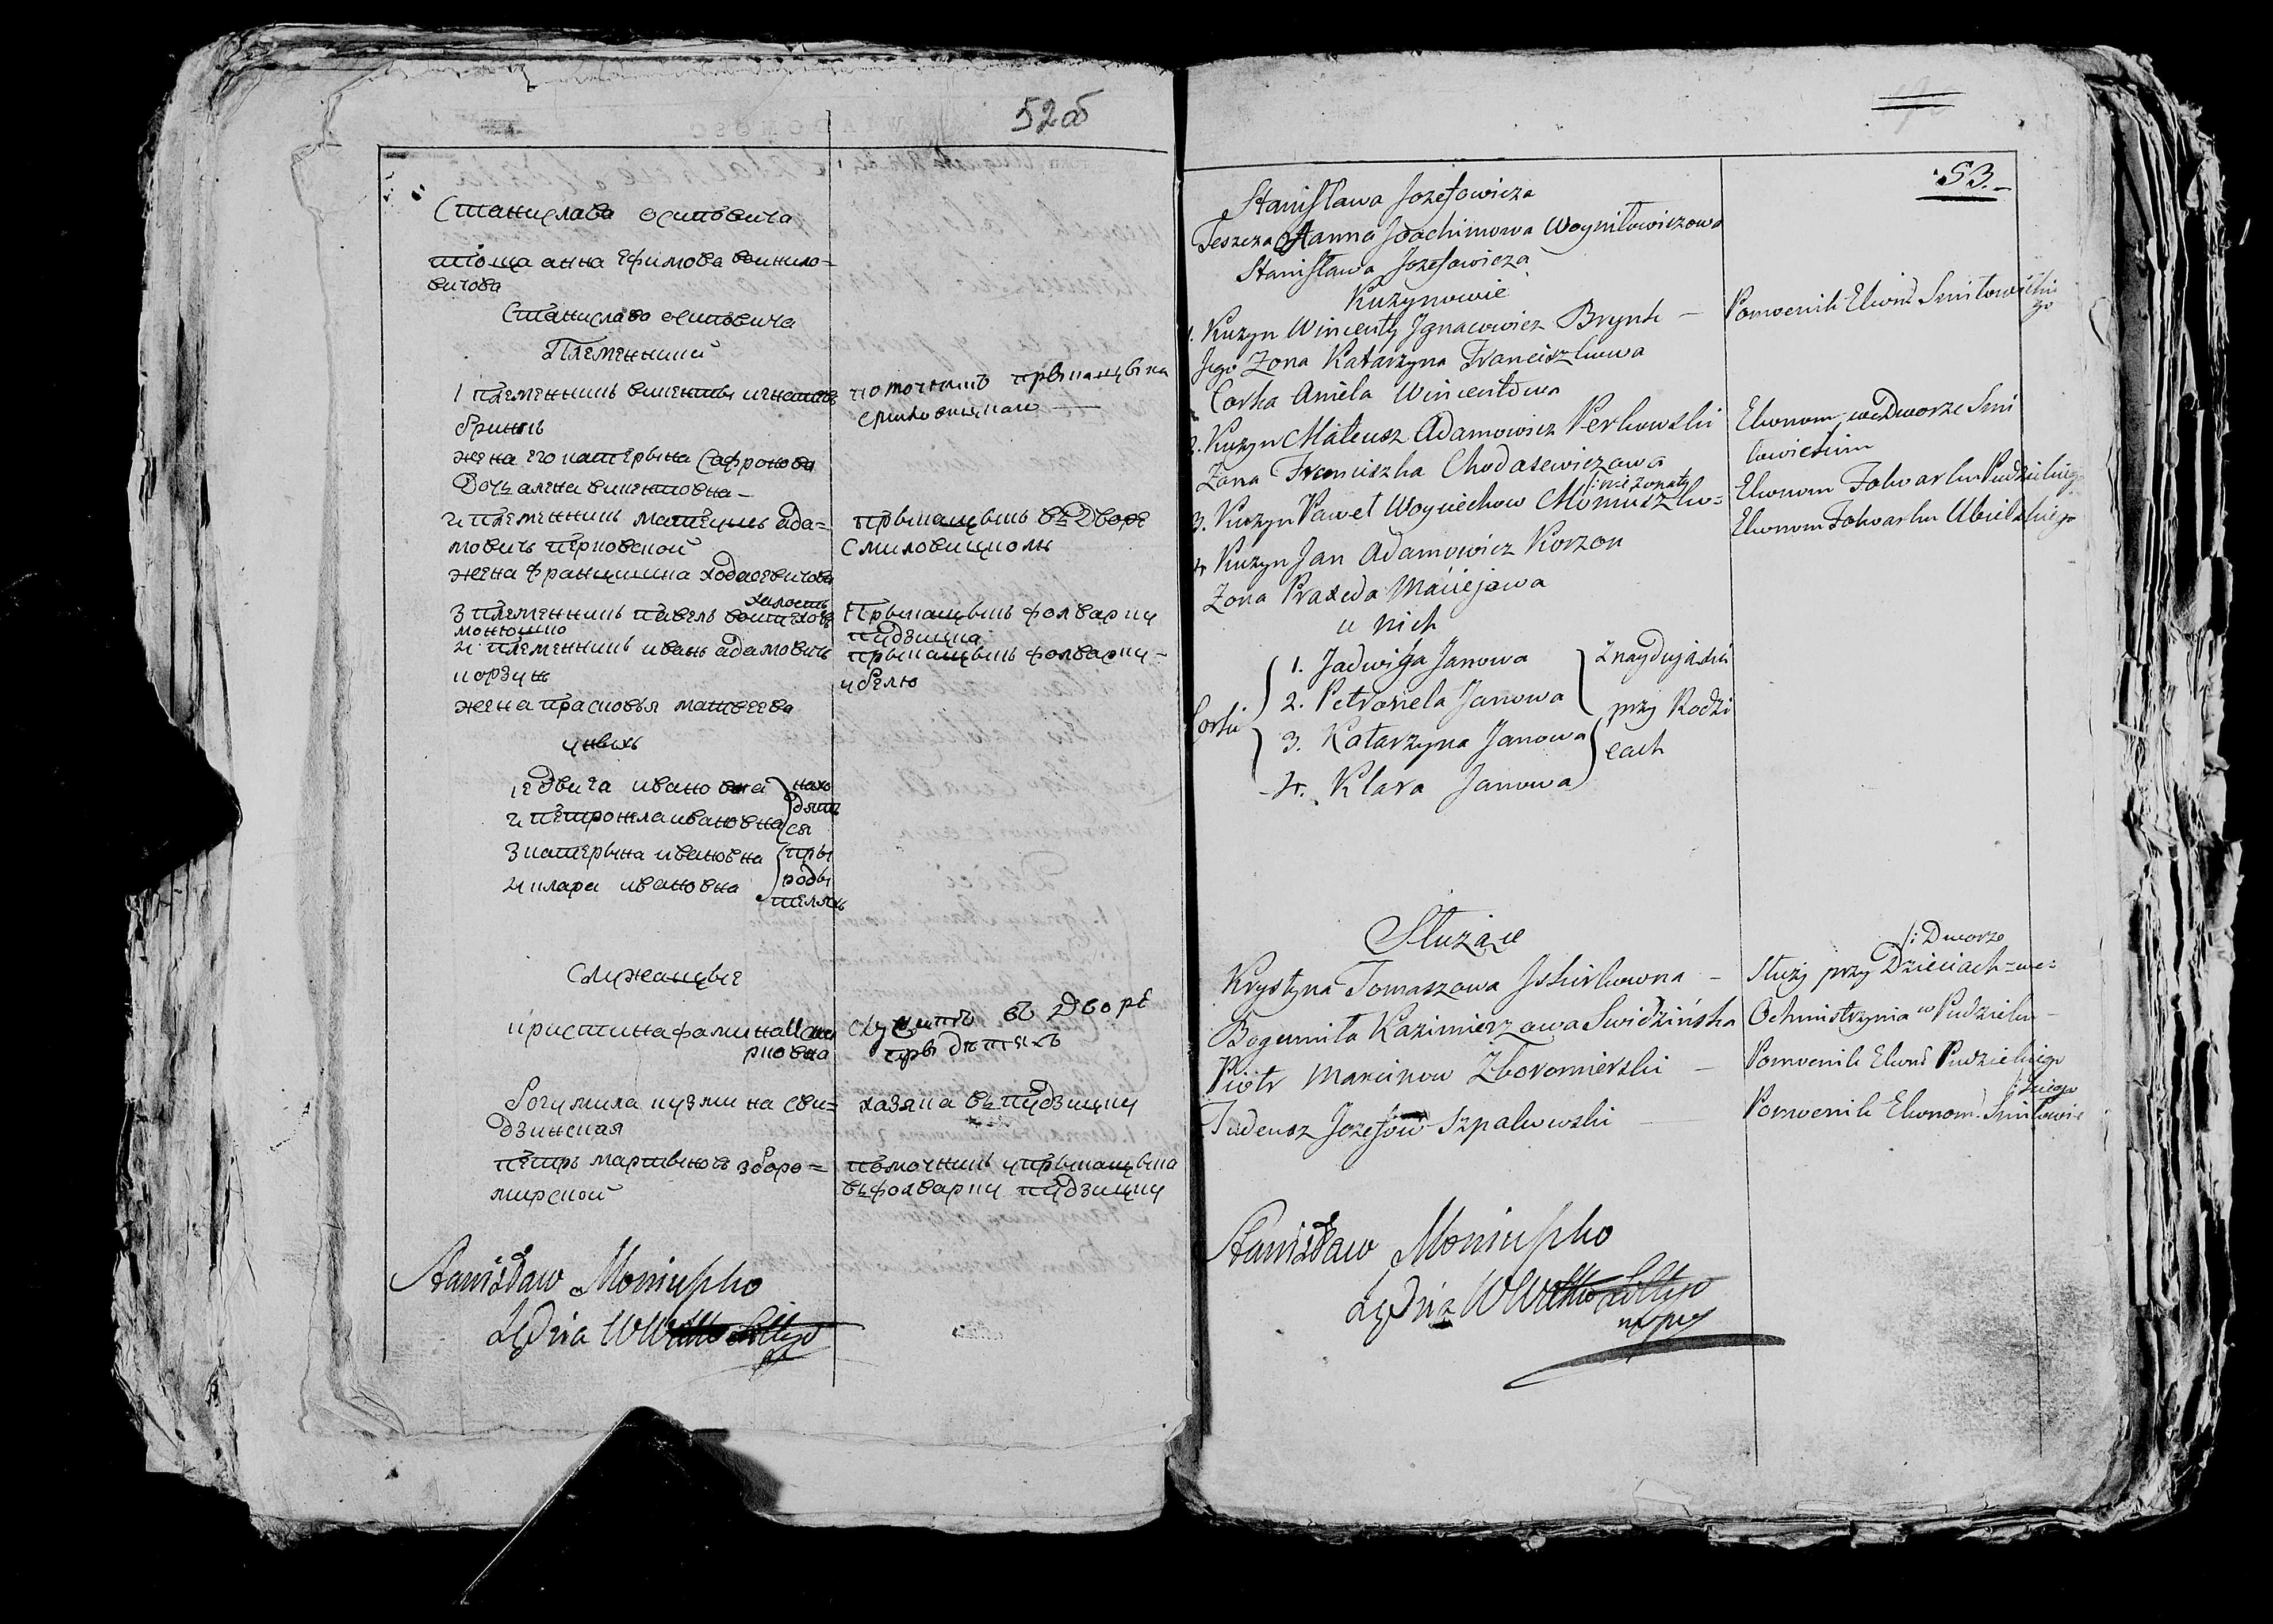 52об
Станислава осиповича
тіоща анна Ефимова воинило=
вичова
Станислава осиповича
Племенники
1 племенникъ викенты игнатовъ
помочникъ прыкащыка
смиловицкаго —
бринкъ
жена его катерына Сафронова
Дочь алена викентовна —
2 племенникъ матеушъ ада=
мовичъ перковской
прыкащыкъ въ Дворе
Смиловицкомъ
жена францишка ходасевичова
холостъ
3 племенникъ павелъ воитеховъ
монюшко
Прыкащыкъ фолварку
пудзицка
4 племенникъ иванъ адамовичъ
корзунъ
прыкащыкъ фолварку
убелю
жена прасковья матвеева
у ныхъ
1 едвига ивановна
2 петронела ивановна
3 катерына ивановна
4 клара ивановна
нахо
дятъ
ся
пры
роды
теляхъ
Служащые
кристина фамина
рковна
служитъ въ Дворе
пры дитяхъ
богумила кузмина сви=
дзинская
хазяка въ пудзицку
петръ мартыновъ зборо=
мирской
помочникъ у прыкащыка
въ фолварку пудзицку
Stanisław Moniuszko
Sędzia
53.
Stanisława Jozefowicza
Teszcza Hanna Joachimowa Woyniłowiczowa
Stanisława Jozefowicza
Kuzynowie
1. Kuzyn Wincenty Jgnacowicz Brynk —
Pomocnik Ekonō Smiłowickie
go
Jego Zona Katarzyna Franciszkowa
Corka Aniela Wincentowa
2. Kuzyn Mateusz Adamowicz Perkowski
Ekonom we Dworze Smi
łowickim
Zona Franciszka Chodasewiczowa
nie zonaty
3. Kuzyn Paweł Woyciechow Moniuszko=
Ekonom Folwarku Pudzickiego
4 Kuzyn Jan Adamowicz Korzon
Ekonom Folwarku Ubielskiego
Zona Praxeda Maciejowa
u nich
Corki
1. Jadwiga Janowa
2. Petronela Janowa
3. Katarzyna Janowa
4. Klara Janowa
Znaydują się
przy Rodzi
cach
Służące
Krystyna Tomaszowa Jskierkowna —
Służy przy Dzieciach we=
Dworze
Bogumiła Kazimierzowa Swidzińska
Ochmistrzynia w Pudzicku —
Piotr Marcinow Zboromierski —
Pomocnik Ekonō Pudzickiego
Tadeusz Jozefow Szpakowski —
Pomocnik Ekonom. Smiłowic
kiego
Stanisław Moniuszko
Sędzia